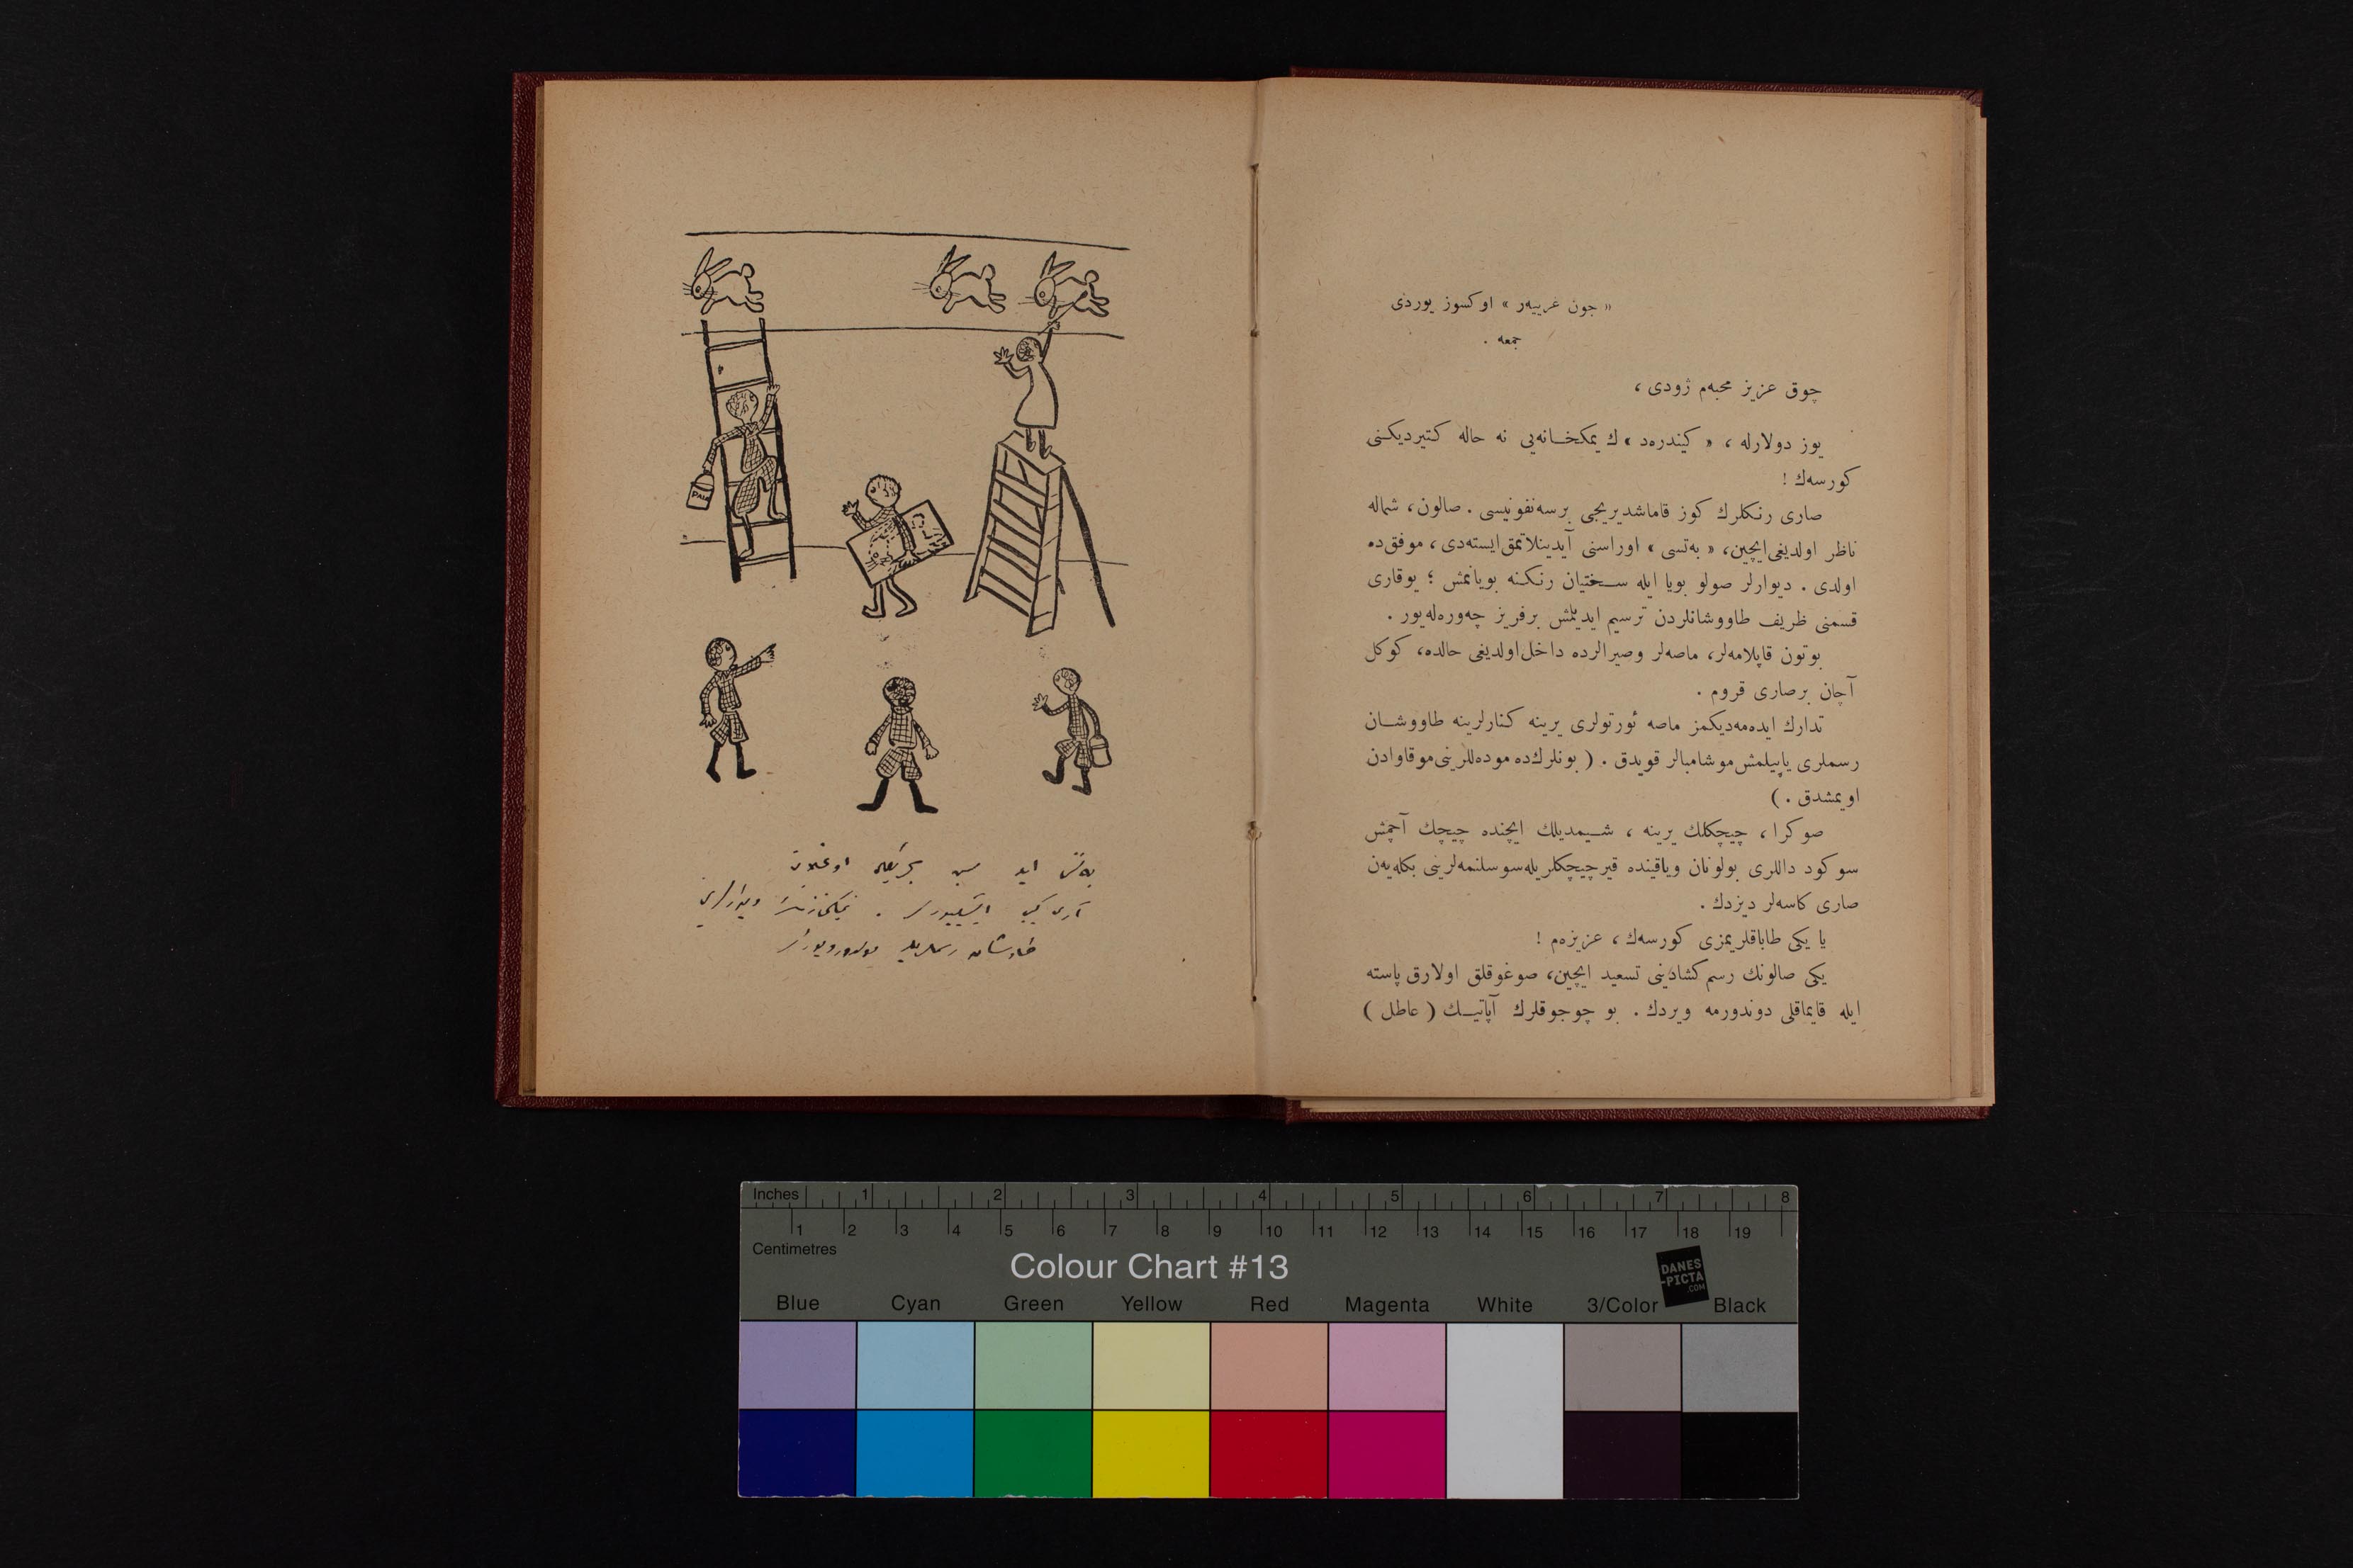 « جون غرييه‌ر » اوكسوز يوردى
جمعه .
چوق عزيز محبه‌م ژودى ،
يوز دولارله ، « كيندره‌د » ك يمكخانه‌يى نه حاله كتيرديكنى
كورسه‌ك !
صارى رنكلرك كوز قاماشديريجى برسه‌نفونيسى . صالون، شماله
ناظر اولديغى ايچين، « به‌تسى » اوراسنى آيدينلاتمق ايسته‌دى ، موفق ده
اولدى . ديوارلر صولو بويا ايله سختيان رنكنه بويانمش ؛ يوقارى
قسمنى ظريف طاووشانلردن ترسيم ايديلمش برفريز چه‌وره‌له‌يور .
بوتون قاپلامه‌لر، ماصه‌لر وصيرالرده داخل اولديغى حالده، كوكل
آچان برصارى قروم .
تدارك ايده‌مه‌ديكمز ماصه ئورتولرى يرينه كنارلرينه طاووشان
رسملرى ياپيلمش موشامبالر قويدق . ( بونلرك ده موده‌للرينى موقاوادن
اويمشدق . )
صوكرا ، چيچكلك يرينه ، شيمديلك ايچنده چيچك آچمش
سوكود داللرى بولونان وياقينده قيرچيچكلريله سوسلنمه‌لرينى بكله‌يه‌ن
صارى كاسه‌لر ديزدك .
يا يكى طاباقلريمزى كورسه‌ك ، عزيزه‌م !
يكى صالونك رسم كشادينى تسعيد ايچين، صوغوقلق اولارق پاسته
ايله قايماقلى دوندورمه ويردك . بو چوجوقلرك آپاتيك ( عاطل )
PAIN
آرى كبى
طاوشان رسملريله
Inches 1 2 3 4 5 6 7 8
1 2 3 4 5 6 7 8 9 10 11 12 13 14 15 16 17 18 19
Centimetres
Colour Chart #13
DANES
-PICTA
.COM
Blue Cyan Green Yellow Red Magenta White 3/Color Black